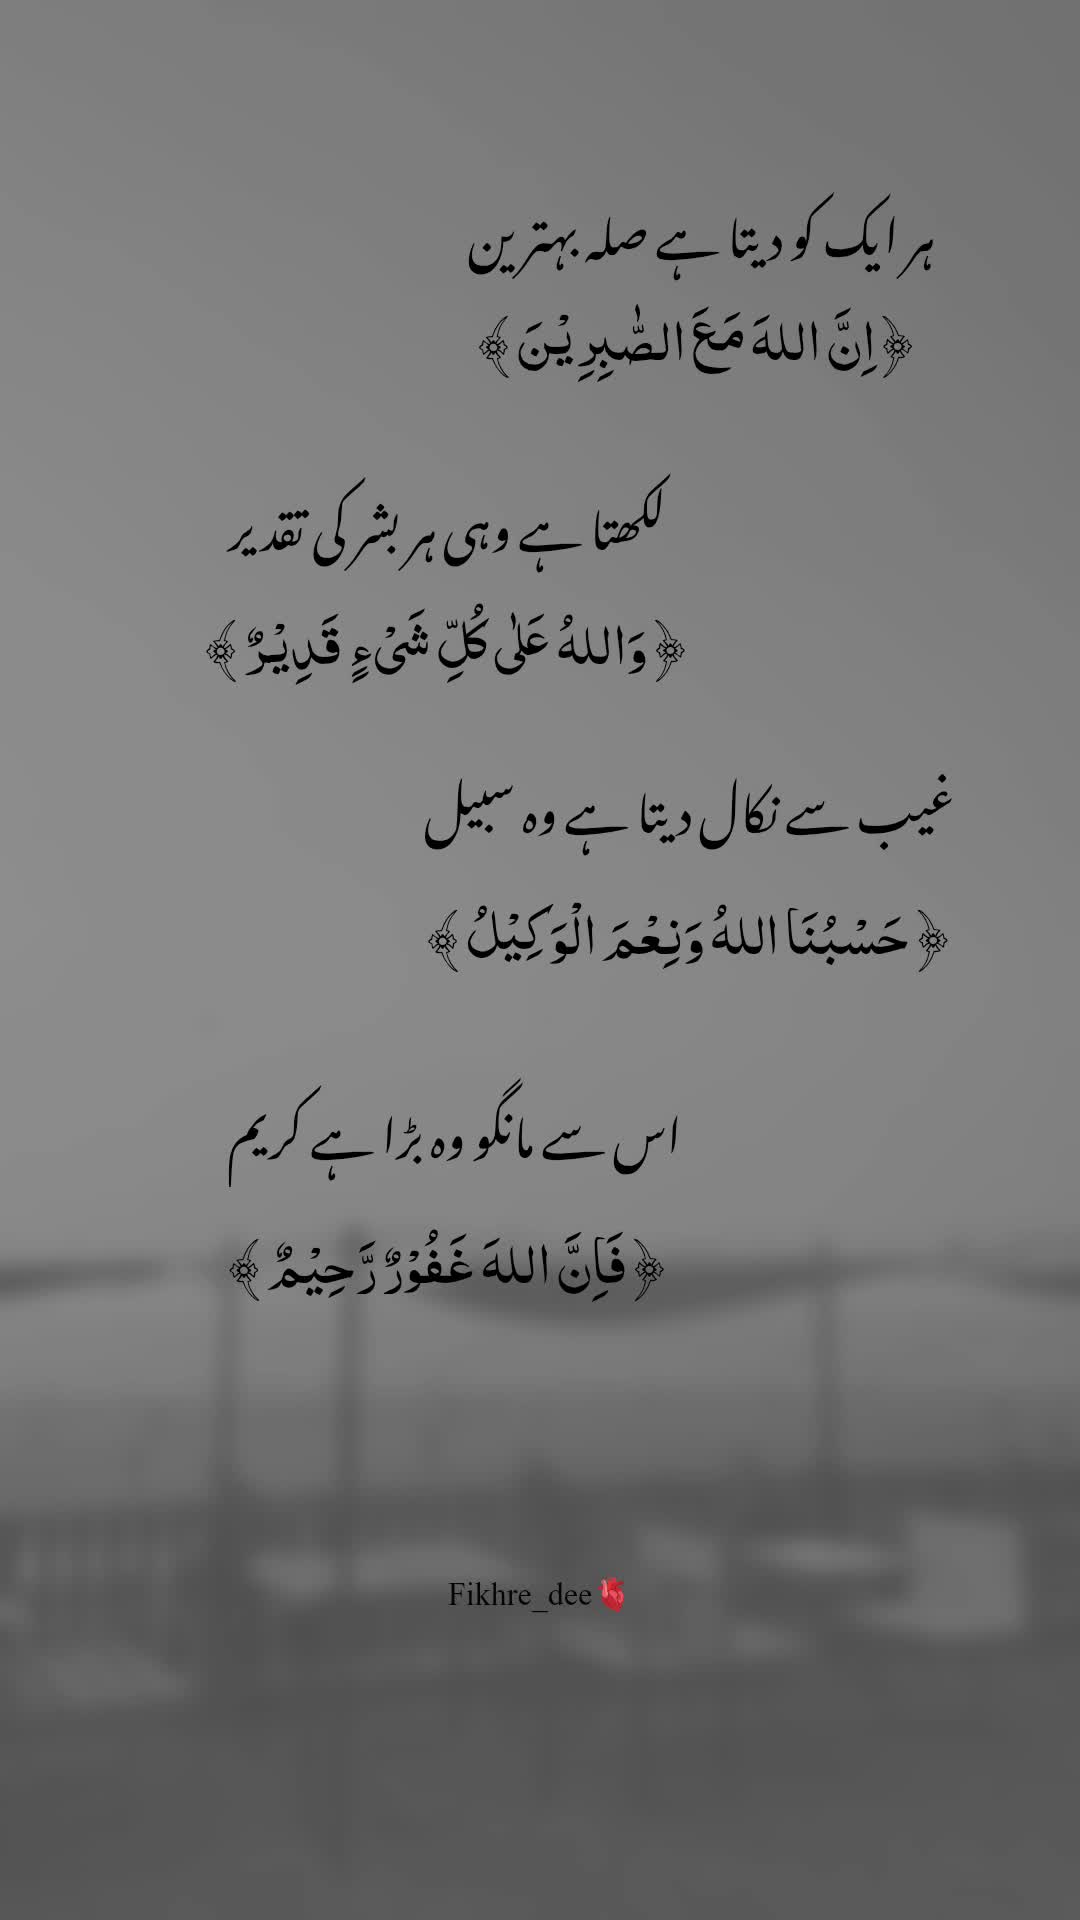 ہر ایک کو دیتا ہے صلہ بہترین
﴿اِنَّ اللهَ مَعَ الصّٰبِرِیْنَ﴾
لکھتا ہے وہی ہر بشر کی تقدیر
﴿وَاللهُ عَلٰی کُلِّ شَیْءٍ قَدِیْرٌ﴾
غیب سے نکال دیتا ہے وہ سبیل
﴿حَسْبُنَا اللهُ وَنِعْمَ الْوَکِیْلُ﴾
اس سے مانگو وہ بڑا ہے کریم
﴿فَاِنَّ اللهَ غَفُوْرٌ رَّحِیْمٌ﴾
Fikhre_dee🫀